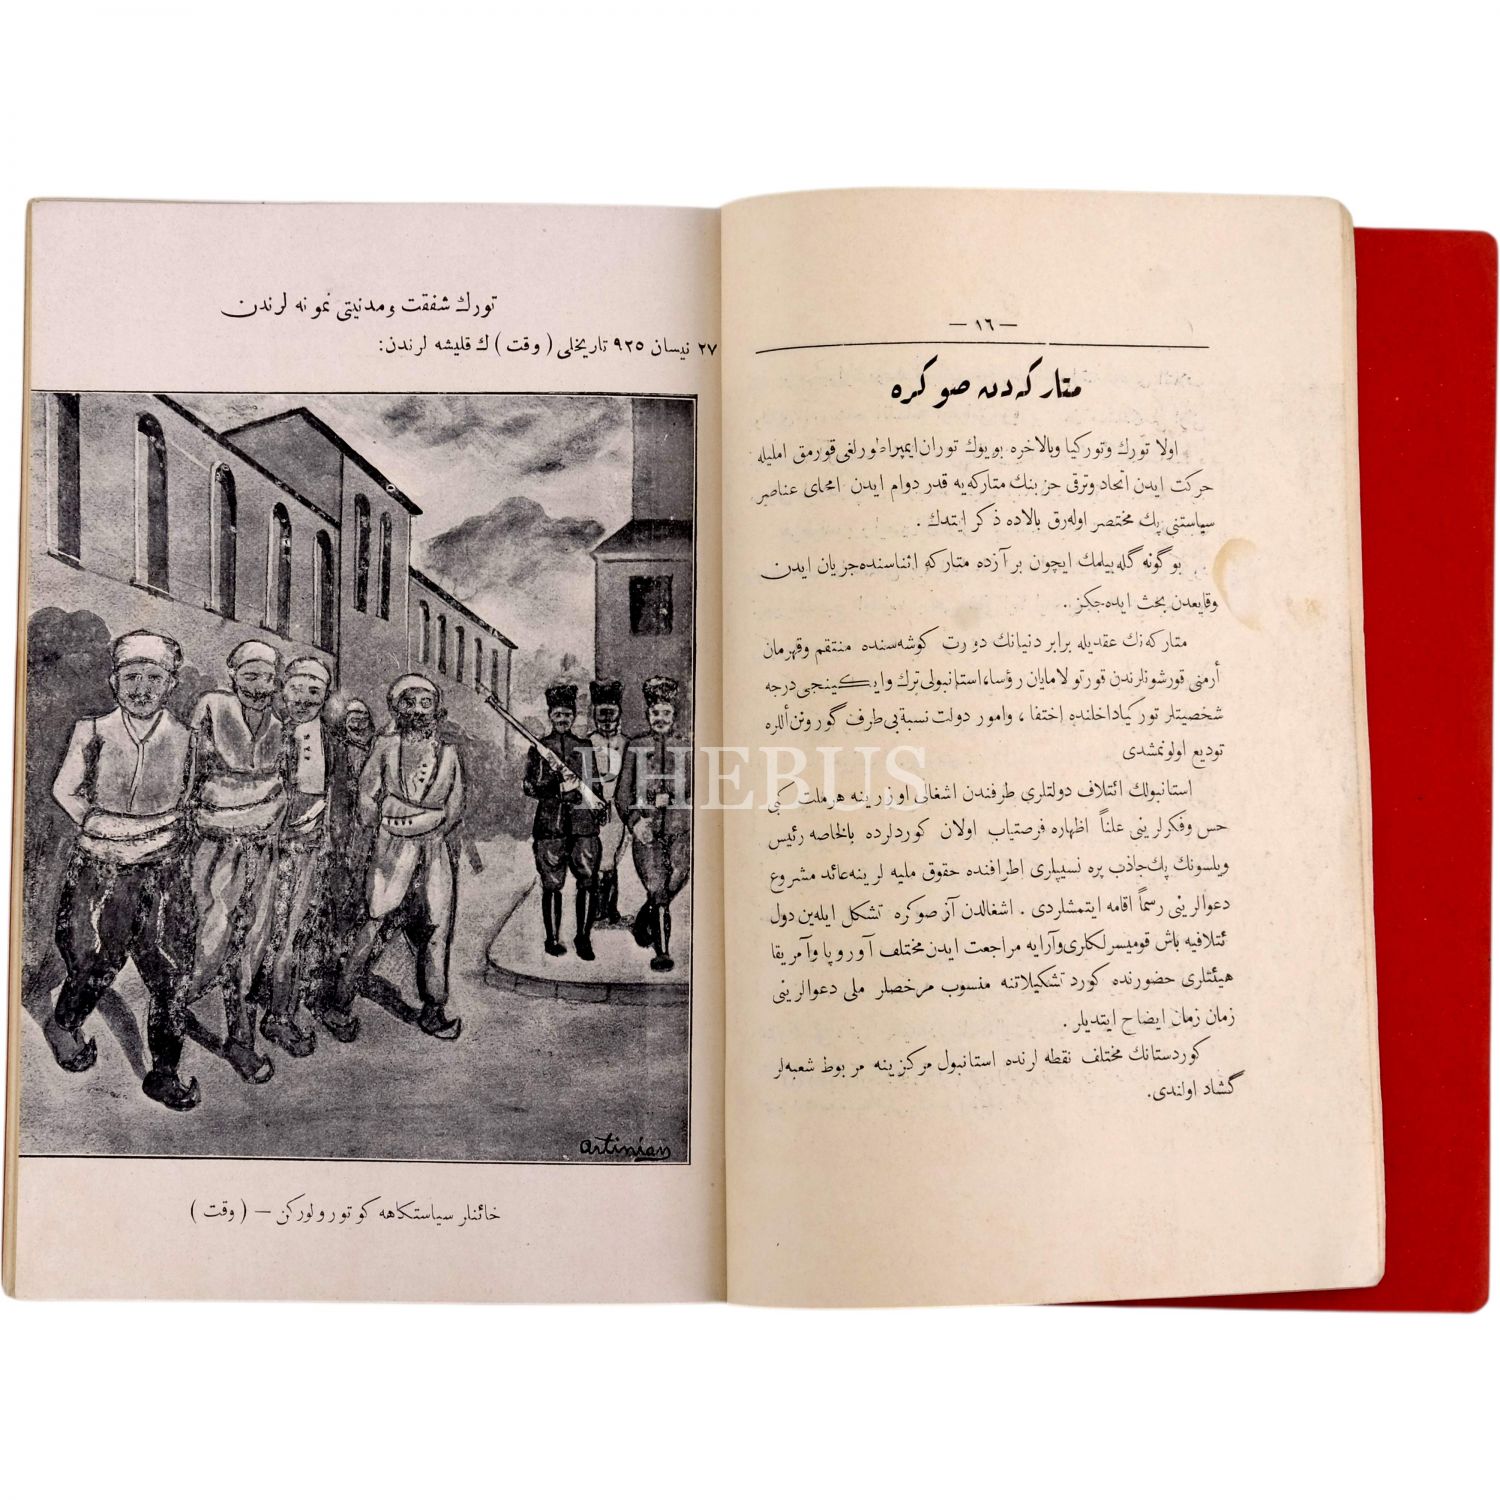 تورك شفقت و مدنیتی نمونه لرندن
٢٧ نیسان ٩٢٥ تاریخلی (وقت) ك قلیشه لرندن:
artinian
خائنلر سیاستكاهه كوتورولوركن — (وقت)
— ١٦ —
متاركه دن صوكره
اولا تورك وتوركیا وبالاخره بویوك توران ایمپراطورلغی قورمق املیله
حركت ایدن اتحاد وترقی حزبنك متاركه یه قدر دوام ایدن امحای عناصر
سیاستنی پك مختصر اوله رق بالاده ذكر ایتدك .
بو گونه گله بیلمك ایچون بر آزده متاركه اثناسنده جریان ایدن
وقایعدن بحث ایده جكز .
متاركه نك عقدیله برابر دنیانك دورت كوشه سنده منتقم وقهرمان
أرمنی قورشونلرندن قورتولامایان رؤسا، استانبولی ترك وایكینجی درجه
شخصیتلر توركیا داخلنده اختفا ، وامور دولت نسبة بی طرف گورونن أللره
تودیع اولونمشدی
استانبولك ائتلاف دولتلری طرفندن اشغالی اوزرینه هر ملت كبی
حس وفكرلرینی علناً اظهاره فرصتیاب اولان كوردلرده بالخاصه رئیس
ویلسونك پك جاذب پره نسیپلری اطرافنده حقوق ملیه لرینه عائد مشروع
دعوالرینی رسماً اقامه ایتمشلردی . اشغالدن آز صوكره تشكل ایله ین دول
ئتلافیه باش قومیسرلكلری وآرایه مراجعت ایدن مختلف آوروپا وآمریقا
هیئتلری حضورنده كورد تشكیلاتنه منسوب مرخصلر ملی دعوالرینی
زمان زمان ایضاح ایتدیلر .
كوردستانك مختلف نقطه لرنده استانبول مركزینه مربوط شعبه لر
گشاد اولندی.
PHEBUS